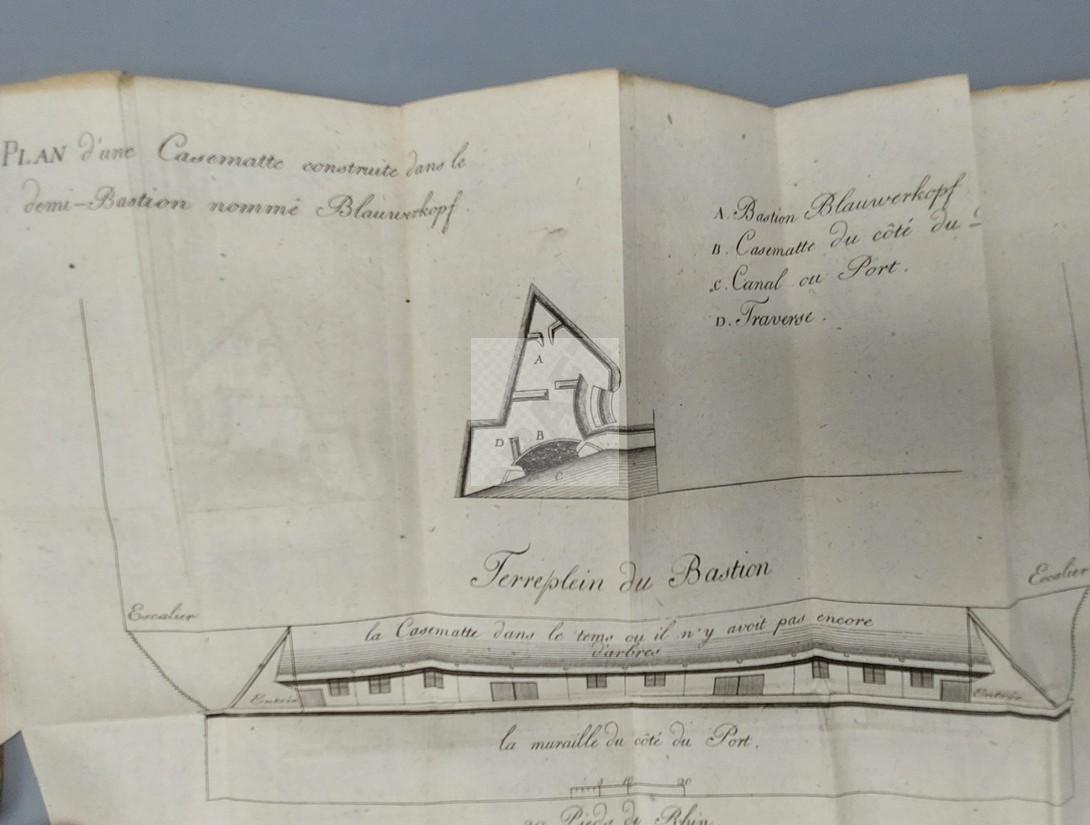 PLAN d'une Casematte construite dans le
demi-Bastion nommé Blauwerkopf.
A. Bastion Blauwerkopf
B. Casematte du côté du
C. Canal ou Port.
D. Traverse.
A
D
B
C
Terreplein du Bastion
Escalier
Escalier
la Casematte dans le tems ou il n'y avoit pas encore
d'arbres
Entrée
Entrée
la muraille du côté du Port.
Pieds de Rhin